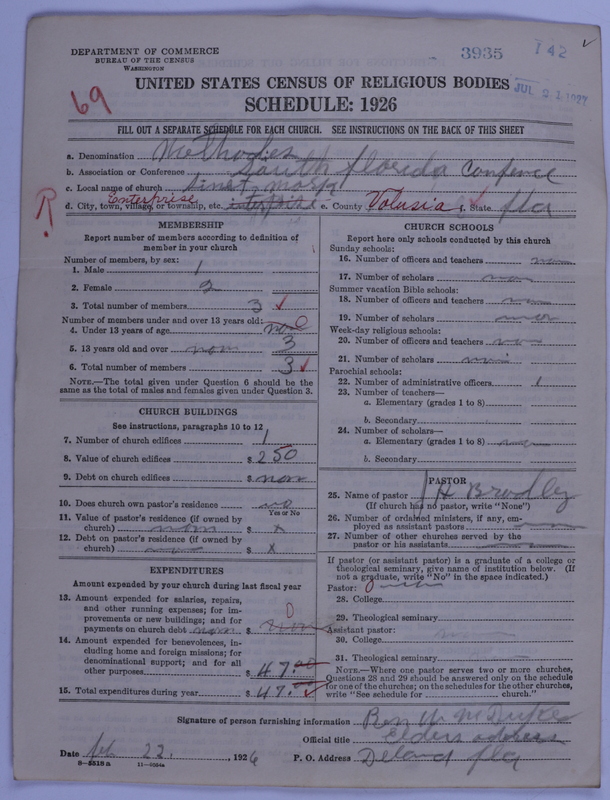 DEPARTMENT OF COMMERCE
BUREAU OF THE CENSUS
WASHINGTON
3935
142
JUL 2 1927
69
UNITED STATES CENSUS OF RELIGIOUS BODIES
SCHEDULE: 1926
FILL OUT A SEPARATE SCHEDULE FOR EACH CHURCH. SEE INSTRUCTIONS ON THE BACK OF THIS SHEET
a. Denomination Methodes
b. Association or Conference South florida Confence
c. Local name of church
d. City, town, village, or township, etc. Enterprise e. County Volusia f. State fla
R
MEMBERSHIP
Report number of members according to definition of member in your church
Number of members, by sex:
1. Male 1
2. Female 2
3. Total number of members 3
Number of members under and over 13 years old:
4. Under 13 years of age non 0
5. 13 years old and over non 3
6. Total number of members 3
NOTE.—The total given under Question 6 should be the same as the total of males and females given under Question 3.
CHURCH BUILDINGS
See instructions, paragraphs 10 to 12
7. Number of church edifices 1
8. Value of church edifices $ 250
9. Debt on church edifices $ non
10. Does church own pastor's residence no
Yes or No
11. Value of pastor's residence (if owned by church) $ x
12. Debt on pastor's residence (if owned by church) $ x
EXPENDITURES
Amount expended by your church during last fiscal year
13. Amount expended for salaries, repairs, and other running expenses; for improvements or new buildings; and for payments on church debt non $ 0
14. Amount expended for benevolences, including home and foreign missions; for denominational support; and for all other purposes $ 47.00
15. Total expenditures during year $ 47.00
CHURCH SCHOOLS
Report here only schools conducted by this church
Sunday schools:
16. Number of officers and teachers
17. Number of scholars non
Summer vacation Bible schools:
18. Number of officers and teachers
19. Number of scholars
Week-day religious schools:
20. Number of officers and teachers
21. Number of scholars
Parochial schools:
22. Number of administrative officers 1
23. Number of teachers—
a. Elementary (grades 1 to 8)
b. Secondary
24. Number of scholars—
a. Elementary (grades 1 to 8)
b. Secondary
PASTOR
25. Name of pastor J H Brodley
(If church has no pastor, write "None")
26. Number of ordained ministers, if any, employed as assistant pastors
27. Number of other churches served by the pastor or his assistants
If pastor (or assistant pastor) is a graduate of a college or theological seminary, give name of institution below. (If not a graduate, write "No" in the space indicated.)
Pastor:
28. College
29. Theological seminary
Assistant pastor:
30. College
31. Theological seminary
NOTE.—Where one pastor serves two or more churches, Questions 28 and 29 should be answered only on the schedule for one of the churches; on the schedules for the other churches, write "See schedule for church."
Signature of person furnishing information
Official title Elders address
Date feb 22, 1926 P. O. Address Deland fla
8-5518a 11-9054a